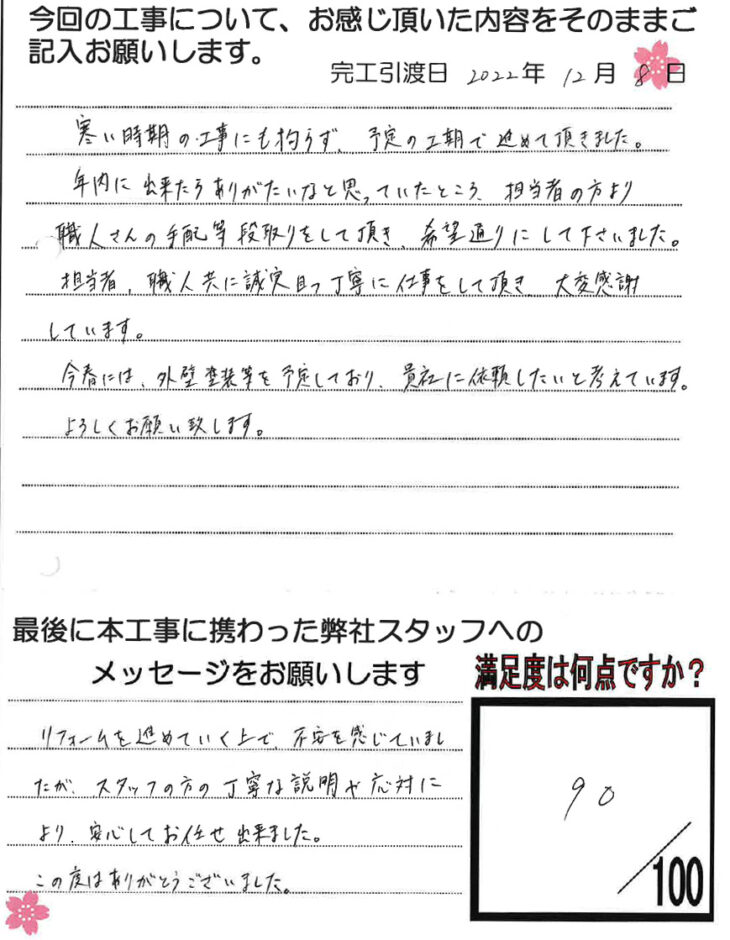 今回の工事について、お感じ頂いた内容をそのままご
記入お願いします。
完工引渡日 2022年 12月 8日
寒い時期の工事にも拘らず、予定の工期で進めて頂きました。
年内に出来たらありがたいなと思っていたところ、担当者の方より
職人さんの手配等段取りをして頂き、希望通りにして下さいました。
担当者、職人共に誠実且つ丁寧に仕事をして頂き、大変感謝
しています。
今春には、外壁塗装等を予定しており、貴社に依頼したいと考えています。
よろしくお願い致します。
最後に本工事に携わった弊社スタッフへの
メッセージをお願いします
満足度は何点ですか？
リフォームを進めていく上で、不安を感じていまし
たが、スタッフの方の丁寧な説明や応対に
より、安心してお任せ出来ました。
この度はありがとうございました。
90
/100